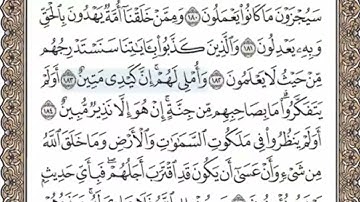 سَيُجْزَوْنَ مَا كَانُوا۟ يَعْمَلُونَ ١٨٠ وَمِمَّنْ خَلَقْنَآ أُمَّةٌ يَهْدُونَ بِٱلْحَقِّ
وَبِهِۦ يَعْدِلُونَ ١٨١ وَٱلَّذِينَ كَذَّبُوا۟ بِـَٔايَٰتِنَا سَنَسْتَدْرِجُهُم
مِّنْ حَيْثُ لَا يَعْلَمُونَ ١٨٢ وَأُمْلِى لَهُمْ ۚ إِنَّ كَيْدِى مَتِينٌ ١٨٣ أَوَلَمْ
يَتَفَكَّرُوا۟ ۗ مَا بِصَاحِبِهِم مِّن جِنَّةٍ ۚ إِنْ هُوَ إِلَّا نَذِيرٌ مُّبِينٌ ١٨٤
أَوَلَمْ يَنظُرُوا۟ فِى مَلَكُوتِ ٱلسَّمَٰوَٰتِ وَٱلْأَرْضِ وَمَا خَلَقَ ٱللَّهُ
مِن شَىْءٍ وَأَنْ عَسَىٰٓ أَن يَكُونَ قَدِ ٱقْتَرَبَ أَجَلُهُمْ ۖ فَبِأَىِّ حَدِيثٍۭ